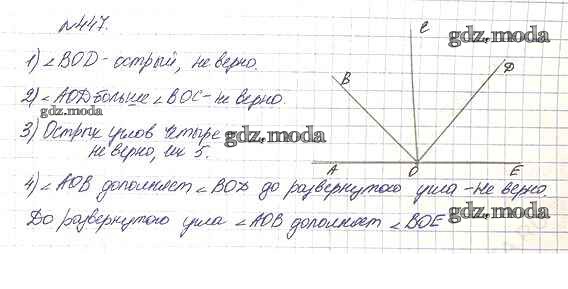 №447.
1) ∠BOD - острый, не верно.
2) ∠AOD больше ∠BOC - не верно.
3) Острых углов четыре
не верно, их 5.
4) ∠AOB дополняет ∠BOD до развернутого угла - не верно
До развернутого угла ∠AOB дополняет ∠BOE
gdz.moda
gdz.moda
gdz.moda
gdz.moda
gdz.moda
C
B
D
A
O
E